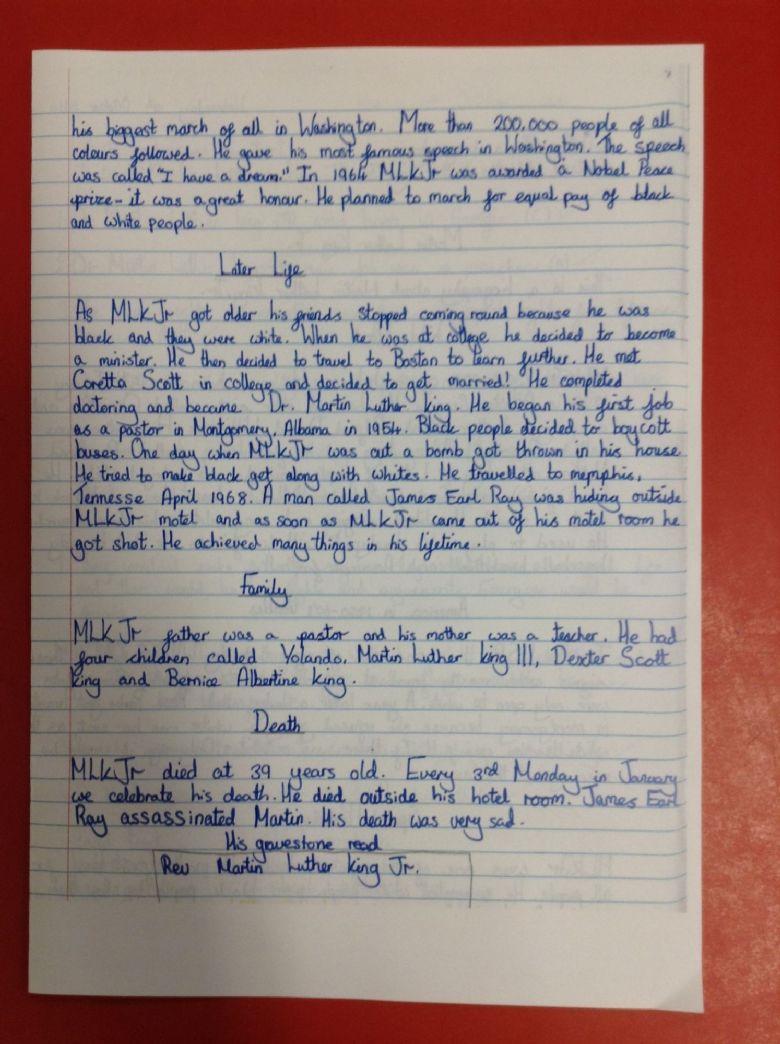 his biggest march of all in Washington. More than 200,000 people of all
colours followed. He gave his most famous speech in Washington. The speech
was called "I have a dream." In 1964 MLKJr was awarded a Nobel Peace
prize - it was a great honour. He planned to march for equal pay of black
and white people.
Later Life
As MLKJr got older his friends stopped coming round because he was
black and they were white. When he was at college he decided to become
a minister. He then decided to travel to Boston to learn further. He met
Coretta Scott in college and decided to get married! He completed
doctoring and became Dr. Martin Luther king. He began his first job
as a pastor in Montgomery, Albama in 1954. Black people decided to boycott
buses. One day when MLKJr was out a bomb got thrown in his house.
He tried to make black get along with whites. He travelled to memphis,
Tennesse April 1968. A man called James Earl Ray was hiding outside
MLKJr motel and as soon as MLKJr came out of his motel room he
got shot. He achieved many things in his lifetime.
Family
MLKJr father was a pastor and his mother was a teacher. He had
four children called Yolando, Martin Luther king III, Dexter Scott
king and Bernice Albertine king.
Death
MLKJr died at 39 years old. Every 3rd Monday in January
we celebrate his death. He died outside his hotel room. James Earl
Ray assassinated Martin. His death was very sad.
His gravestone read
Rev Martin Luther king Jr.